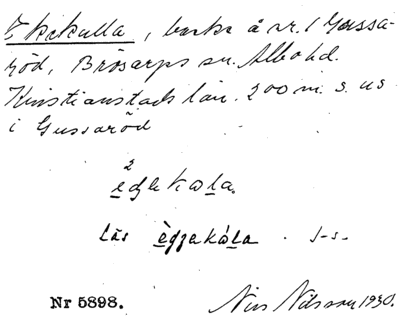 Ekekulla, backe å nr. 1 Gussa-
röd, Brösarps sn. Albo hd.
Kristianstads län. 200 m. s. us
i Gussaröd
2
Läs
Nr 5898. Nils Nilsson 1930.